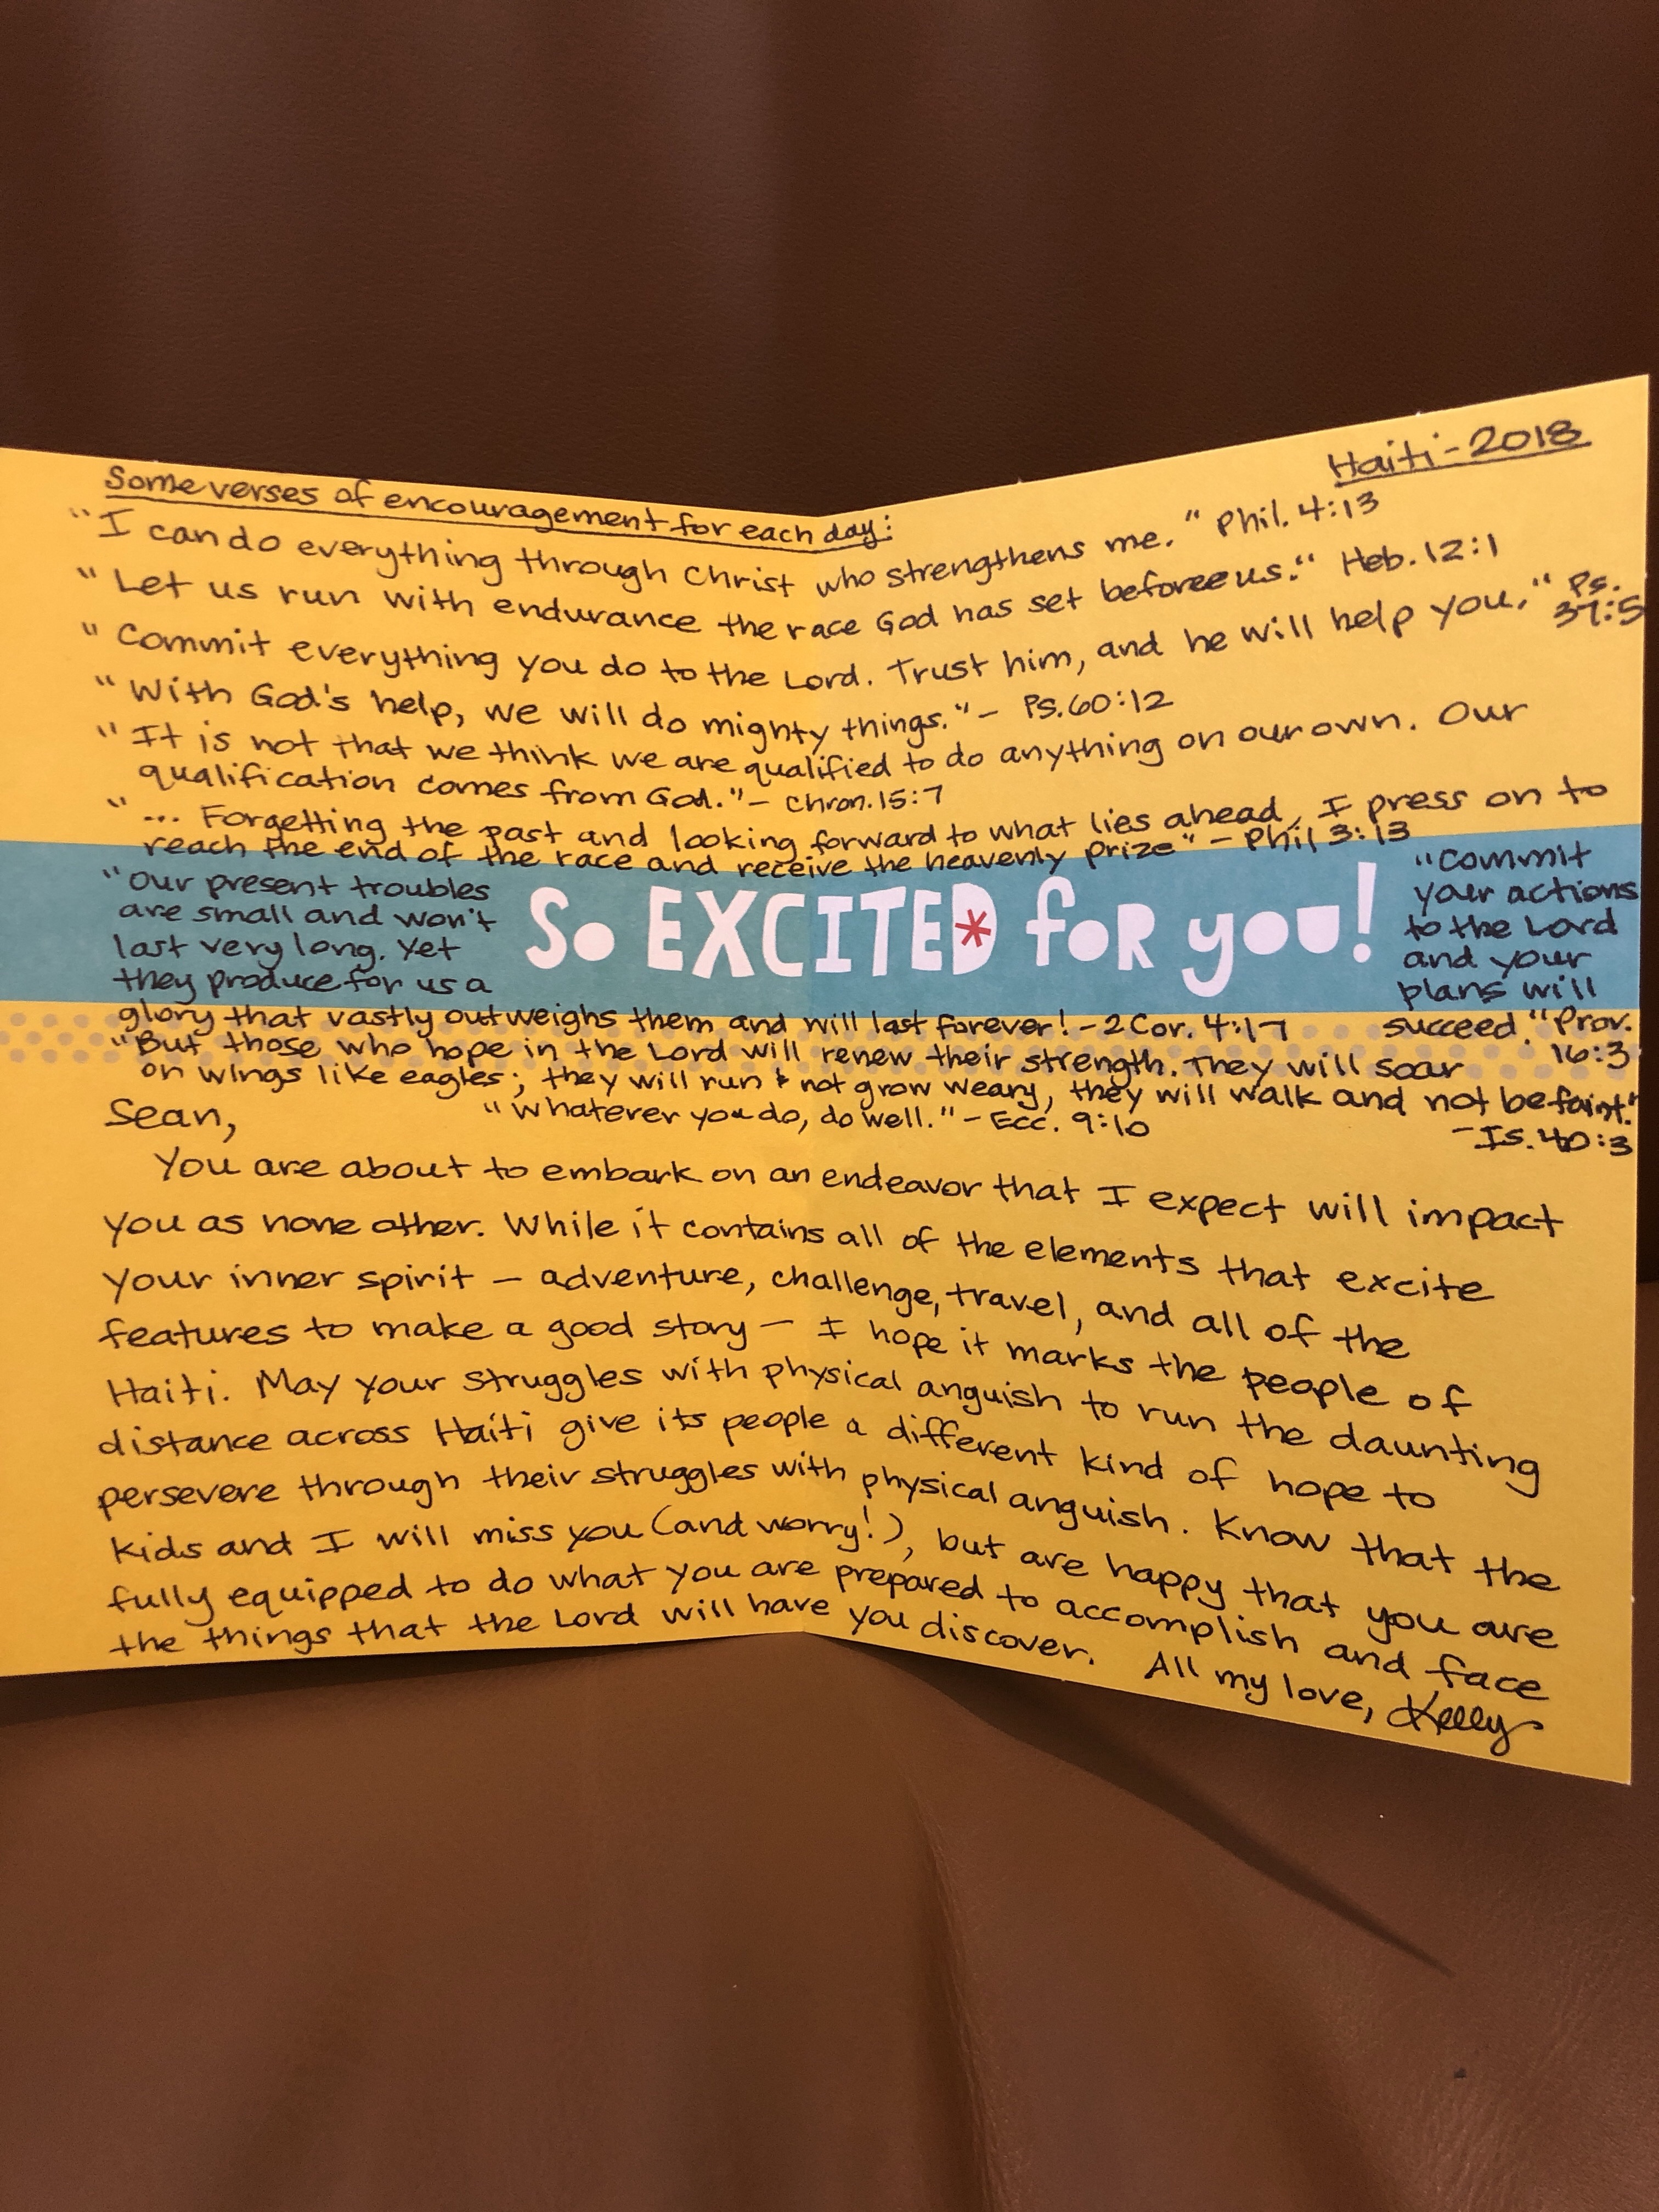 Haiti - 2018
Some verses of encouragement for each day:
"I can do everything through Christ who strengthens me." Phil. 4:13
"Let us run with endurance the race God has set before us." Heb. 12:1
"Commit everything you do to the Lord. Trust him, and he will help you." Ps. 37:5
"With God's help, we will do mighty things." - Ps. 60:12
"It is not that we think we are qualified to do anything on our own. Our
qualification comes from God." - Chron. 15:7
"... Forgetting the past and looking forward to what lies ahead, I press on to
reach the end of the race and receive the heavenly prize" - Phil 3:13
"Our present troubles
are small and won't
last very long. Yet
they produce for us a
glory that vastly outweighs them and will last forever! - 2 Cor. 4:17
So EXCITED for you!
"Commit
your actions
to the Lord
and your
plans will
succeed." Prov.
16:3
"But those who hope in the Lord will renew their strength. They will soar
on wings like eagles; they will run & not grow weary, they will walk and not be faint."
- Is. 40:3
"Whatever you do, do well." - Ecc. 9:10
Sean,
You are about to embark on an endeavor that I expect will impact
you as none other. While it contains all of the elements that excite
your inner spirit - adventure, challenge, travel, and all of the
features to make a good story - I hope it marks the people of
Haiti. May your struggles with physical anguish to run the daunting
distance across Haiti give its people a different kind of hope to
persevere through their struggles with physical anguish. Know that the
kids and I will miss you (and worry!), but are happy that you are
fully equipped to do what you are prepared to accomplish and face
the things that the Lord will have you discover. All my love, Kelly